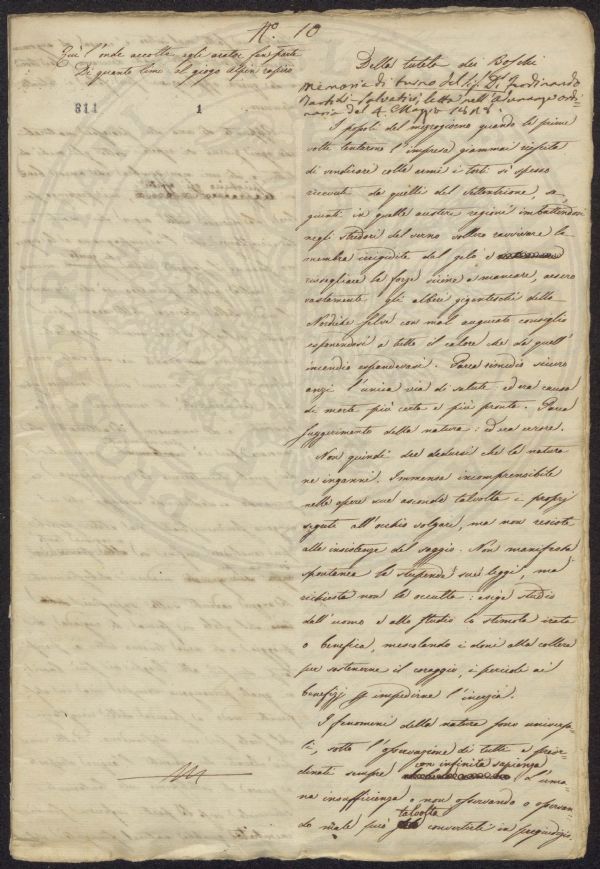 No. 10
Qui l'onde accolta agli aratori
Di quanto lime al giogo alpin rapiro
811 1
Della tutela dei Boschi
Memoria di turno del Sig. D. Ferdinando
letta nell'Adunanza ordi-
naria del 4. Maggio
I popoli del mezzogiorno quando le prime
volte tentarono l'impresa giammai
di vendicare colle armi i torti sì spesso
ricevuti da quelli del settentrione se
quanti in quelle austere regioni imbattendosi
negli stridori del verno vollero ravvivare le
membra irrigidite dal gelo, e
risvegliare le forze vicine a mancare, arsero
vastamente gli alberi giganteschi delle
Nordiche selve con mal augurato consiglio
esponendosi a tutto il calore che da quell'
incendio espandevasi. Parea rimedio sicuro
anzi l'unica via di salute ed era causa
di morte più certa e più pronta. Parea
suggerimento della natura: ed era errore.
Non quindi dee dedursi che la natura
ne inganni. Immensa incomprensibile
nelle opere sue asconde talvolta i proprj
segreti all'occhio volgare, ma non resiste
alle insistenze del saggio. Non manifesta
spontanea le stupende sue leggi, ma
richiesta non le occulta: esige studio
dall'uomo e allo studio lo stimola irata
o benefica, mescolando i doni alla collera
per sostenerne il coraggio, i pericoli ai
benefizj p impedirne l'inerzia.
I fenomeni della natura sono universa-
li, sotto l'osservazione di tutti e preor-
dinati sempre con infinita sapienza. L'uma-
na insufficienza o non osservando o osservan-
do male può talvolta convertirli in pregiudizio.